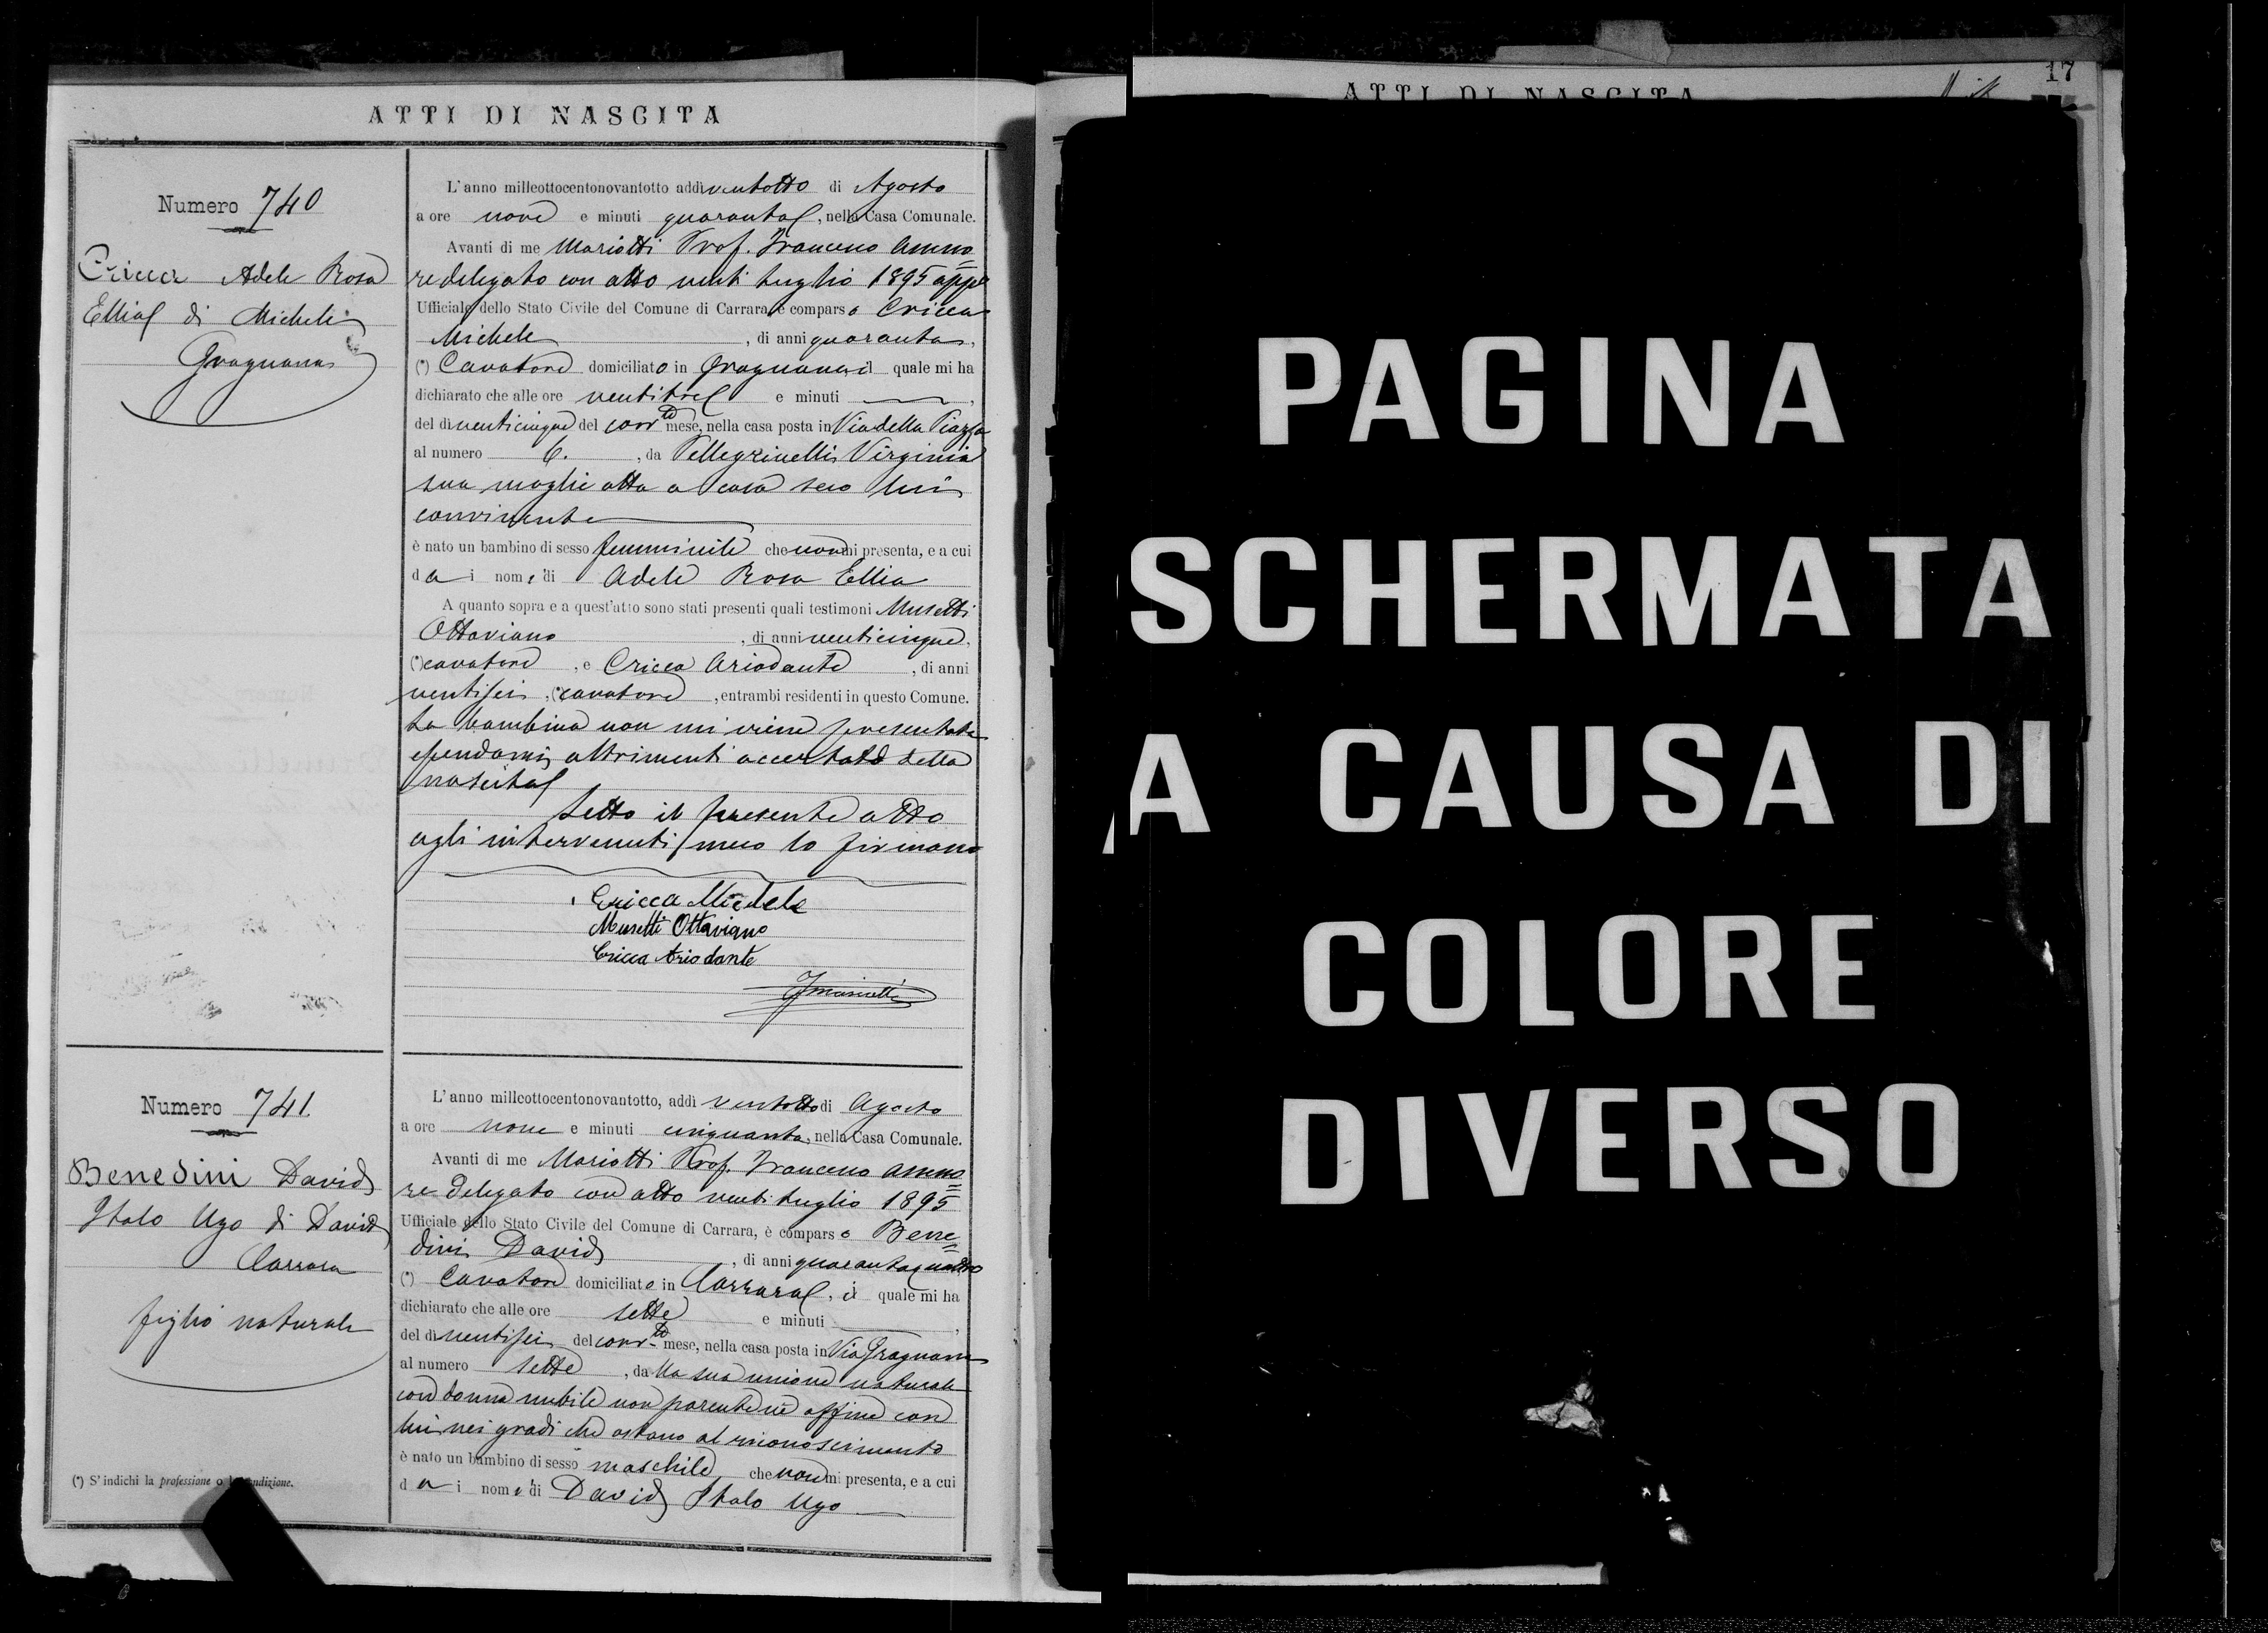 ATTI DI NASCITA
Numero 740
Cricca Adele Rosa
Ellia di Michele
Gragnana
L'anno milleottocentonovantotto addì ventotto di Agosto
a ore nove e minuti quaranta, nella Casa Comunale.
Avanti di me Mariotti Prof. Francesco Ammo=
re delegato con atto venti Luglio 1895 appo
Ufficiale dello Stato Civile del Comune di Carrara è comparso Cricca
Michele, di anni quaranta,
(*) Cavatore domiciliato in Gragnana, il quale mi ha
dichiarato che alle ore ventitre e minuti —,
del dì venticinque del corrte mese, nella casa posta in Via della Piazza
al numero 6., da Pellegrinelli Virginia
sua moglie atta a casa seco lui
convivente
è nato un bambino di sesso femminile che non mi presenta, e a cui
da i nomi di Adele Rosa Ellia
A quanto sopra e a quest'atto sono stati presenti quali testimoni Musetti
Ottaviano, di anni venticinque,
(*) cavatore, e Cricca Ariodante, di anni
ventisei, (*) cavatore, entrambi residenti in questo Comune.
La bambina non mi viene presentata
essendomi altrimenti accertato della
nascita
Letto il presente atto
agli intervenuti meco lo firmano
Cricca Michele
Musetti Ottaviano
Cricca Ariodante
FMariotti
Numero 741.
Benedini David
Italo Ugo di David
Carrara
figlio naturale
L'anno milleottocentonovantotto, addì ventotto di Agosto
a ore nove e minuti cinquanta, nella Casa Comunale.
Avanti di me Mariotti Prof. Francesco Ammo=
re delegato con atto venti Luglio 1895
Ufficiale dello Stato Civile del Comune di Carrara, è comparso Bene=
dini David, di anni quarantaquattro
(*) Cavatore domiciliato in Carrara, il quale mi ha
dichiarato che alle ore sette e minuti —,
del dì ventisei del corrte mese, nella casa posta in Via Gragnana
al numero sette, da lla sua unione naturale
con donna nubile non parente nè affine con
lui nei gradi che ostano al riconoscimento
è nato un bambino di sesso maschile che non mi presenta, e a cui
da i nomi di David Italo Ugo
(*) S'indichi la professione o la condizione.
ATTI DI NASCITA
17
PAGINA
SCHERMATA
A CAUSA DI
COLORE
DIVERSO